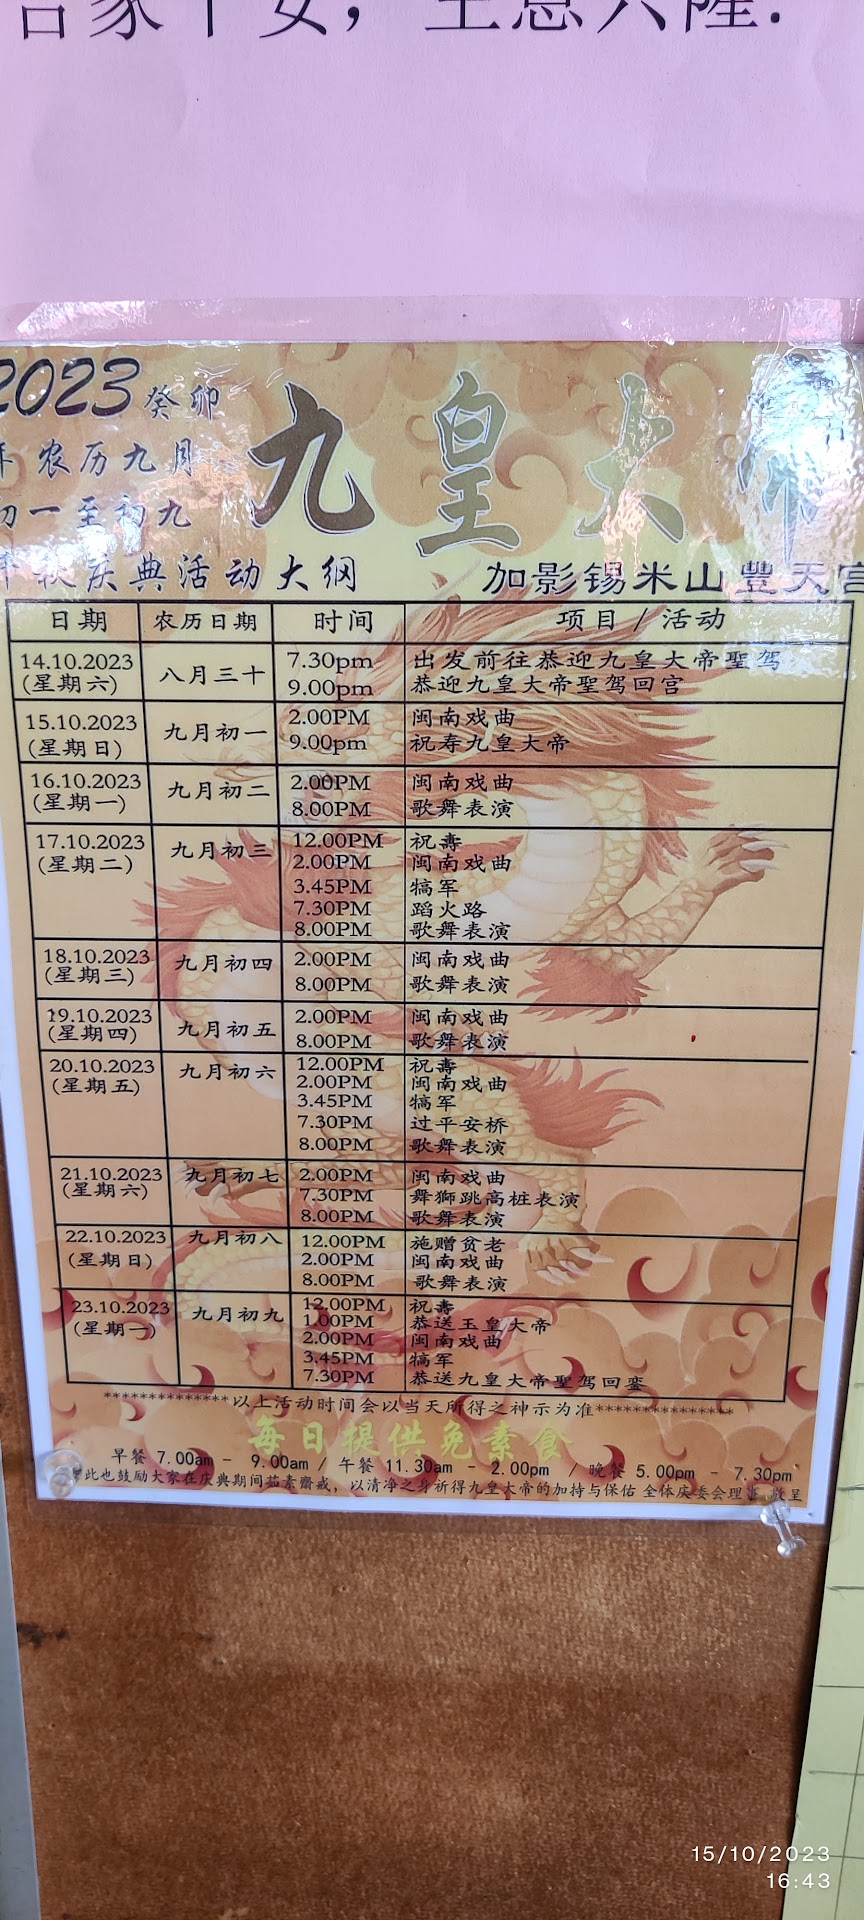 合家平安，生意兴隆.
2023 癸卯
年 农历九月
初一至初九
年秋庆典活动大纲
九皇大帝
加影锡米山豐天宫
日期 农历日期 时间 项目 / 活动
14.10.2023 八月三十 7.30pm 出发前往恭迎九皇大帝聖驾
(星期六) 9.00pm 恭迎九皇大帝聖驾回宫
15.10.2023 九月初一 2.00PM 闽南戏曲
(星期日) 9.00pm 祝寿九皇大帝
16.10.2023 九月初二 2.00PM 闽南戏曲
(星期一) 8.00PM 歌舞表演
17.10.2023 九月初三 12.00PM 祝壽
(星期二) 2.00PM 闽南戏曲
3.45PM 犒军
7.30PM 蹈火路
8.00PM 歌舞表演
18.10.2023 九月初四 2.00PM 闽南戏曲
(星期三) 8.00PM 歌舞表演
19.10.2023 九月初五 2.00PM 闽南戏曲
(星期四) 8.00PM 歌舞表演
20.10.2023 九月初六 12.00PM 祝壽
(星期五) 2.00PM 闽南戏曲
3.45PM 犒军
7.30PM 过平安桥
8.00PM 歌舞表演
21.10.2023 九月初七 2.00PM 闽南戏曲
(星期六) 7.30PM 舞狮跳高桩表演
8.00PM 歌舞表演
22.10.2023 九月初八 12.00PM 施赠贫老
(星期日) 2.00PM 闽南戏曲
8.00PM 歌舞表演
23.10.2023 九月初九 12.00PM 祝壽
(星期一) 1.00PM 恭送玉皇大帝
2.00PM 闽南戏曲
3.45PM 犒军
7.30PM 恭送九皇大帝聖驾回銮
**************以上活动时间会以当天所得之神示为准***************
每日提供免素食
早餐 7.00am - 9.00am / 午餐 11.30am - 2.00pm / 晚餐 5.00pm - 7.30pm
此也鼓励大家在庆典期间茹素齋戒，以清净之身祈得九皇大帝的加持与保佑 全体庆委会理事 敬呈
15/10/2023
16:43